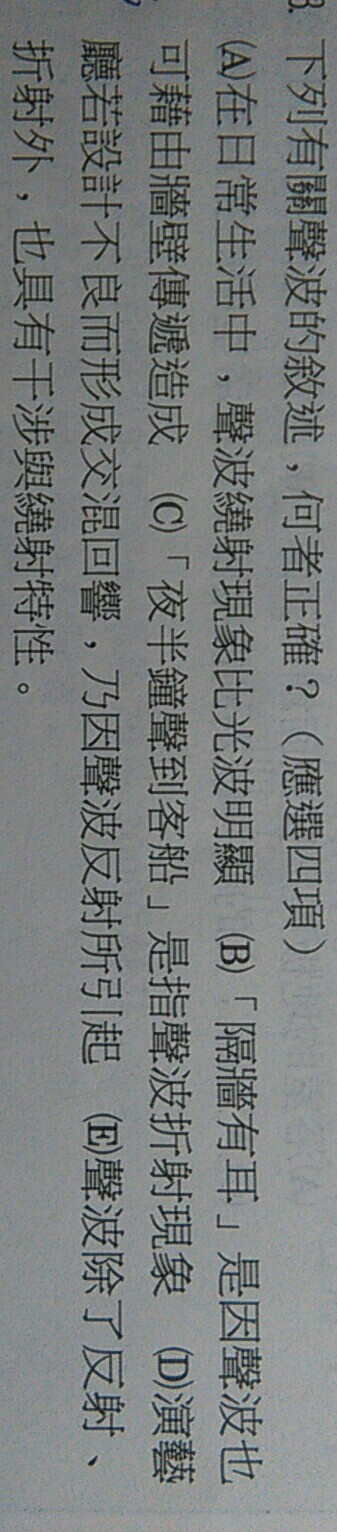 3. 下列有關聲波的敘述，何者正確？（應選四項）
(A)在日常生活中，聲波繞射現象比光波明顯 (B)「隔牆有耳」是因聲波也
可藉由牆壁傳遞造成 (C)「夜半鐘聲到客船」是指聲波折射現象 (D)演藝
廳若設計不良而形成交混回響，乃因聲波反射所引起 (E)聲波除了反射、
折射外，也具有干涉與繞射特性。